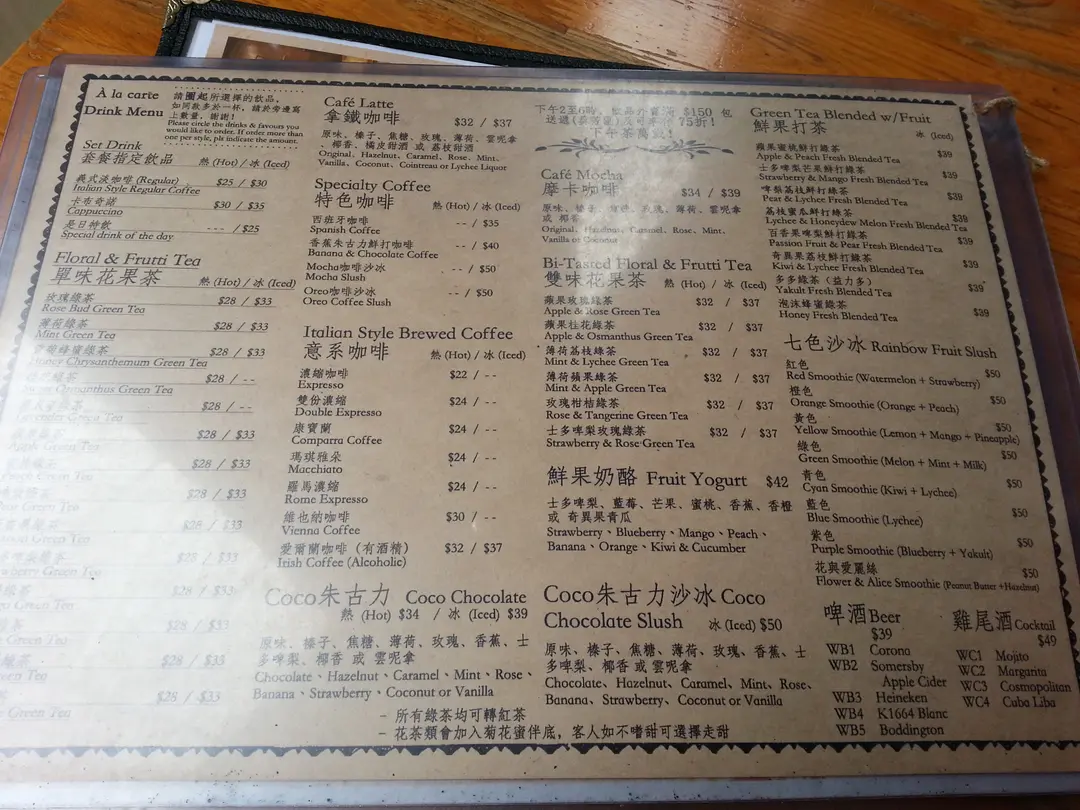 À la carte
Drink Menu
請圈起所選擇的飲品,
如同款多於一杯, 請於旁邊寫
上數量, 謝謝!
Please circle the drinks & favours you
would like to order. If order more than
one per style, pls indicate the amount.
Set Drink
套餐指定飲品 熱 (Hot) / 冰 (Iced)
義式淡咖啡 (Regular) $25 / $30
Italian Style Regular Coffee
卡布奇諾 $30 / $35
Cappuccino
是日特飲 --- / $25
Special drink of the day
Floral & Frutti Tea
單味花果茶 熱 (Hot) / 冰 (Iced)
玫瑰綠茶 $28 / $33
Rose Bud Green Tea
薄荷綠茶 $28 / $33
Mint Green Tea
蜂蜜綠茶 $28 / $33
Honey Chrysanthemum Green Tea
$28 / --
Osmanthus Green Tea
$28 / --
Green Tea
$28 / $33
Green Tea
$28 / $33
Green Tea
$28 / $33
Green Tea
$28 / $33
Green Tea
$28 / $33
Green Tea
$28 / $33
Green Tea
$28 / $33
Green Tea
$28 / $33
Green Tea
$28 / $33
Green Tea
Café Latte
拿鐵咖啡 $32 / $37
原味、榛子、焦糖、玫瑰、薄荷、雲呢拿
、椰香、橘皮甜酒 或 荔枝甜酒
Original, Hazelnut, Caramel, Rose, Mint,
Vanilla, Coconut, Cointreau or Lychee Liquor
Specialty Coffee
特色咖啡 熱 (Hot) / 冰 (Iced)
西班牙咖啡 -- / $35
Spanish Coffee
香蕉朱古力鮮打咖啡 -- / $40
Banana & Chocolate Coffee
Mocha咖啡沙冰 -- / $50
Mocha Slush
Oreo咖啡沙冰 -- / $50
Oreo Coffee Slush
Italian Style Brewed Coffee
意系咖啡 熱 (Hot) / 冰 (Iced)
濃縮咖啡 $22 / --
Expresso
雙份濃縮 $24 / --
Double Expresso
康寶蘭 $24 / --
Comparra Coffee
瑪琪雅朵 $24 / --
Macchiato
羅馬濃縮 $24 / --
Rome Expresso
維也納咖啡 $30 / --
Vienna Coffee
愛爾蘭咖啡 (有酒精) $32 / $37
Irish Coffee (Alcoholic)
Coco朱古力 Coco Chocolate
熱 (Hot) $34 / 冰 (Iced) $39
原味、榛子、焦糖、薄荷、玫瑰、香蕉、士
多啤梨、椰香 或 雲呢拿
Chocolate、Hazelnut、Caramel、Mint、Rose、
Banana、Strawberry、Coconut or Vanilla
- 所有綠茶均可轉紅茶
- 花茶類會加入菊花蜜伴底, 客人如不嗜甜可選擇走甜
下午2至6時, $150 包
75折!
下午茶萬歲!
Café Mocha
摩卡咖啡 $34 / $39
原味、榛子、焦糖、玫瑰、薄荷、雲呢拿
或 椰香
Original, Hazelnut, Caramel, Rose, Mint,
Vanilla or Coconut
Bi-Tasted Floral & Frutti Tea
雙味花果茶 熱 (Hot) / 冰 (Iced)
蘋果玫瑰綠茶 $32 / $37
Apple & Rose Green Tea
蘋果桂花綠茶 $32 / $37
Apple & Osmanthus Green Tea
薄荷荔枝綠茶 $32 / $37
Mint & Lychee Green Tea
薄荷蘋果綠茶 $32 / $37
Mint & Apple Green Tea
玫瑰柑桔綠茶 $32 / $37
Rose & Tangerine Green Tea
士多啤梨玫瑰綠茶 $32 / $37
Strawberry & Rose Green Tea
鮮果奶酪 Fruit Yogurt $42
士多啤梨、藍莓、芒果、蜜桃、香蕉、香橙
或 奇異果青瓜
Strawberry、Blueberry、Mango、Peach、
Banana、Orange、Kiwi & Cucumber
Coco朱古力沙冰 Coco
Chocolate Slush 冰 (Iced) $50
原味、榛子、焦糖、薄荷、玫瑰、香蕉、士
多啤梨、椰香 或 雲呢拿
Chocolate、Hazelnut、Caramel、Mint、Rose、
Banana、Strawberry、Coconut or Vanilla
Green Tea Blended w/Fruit
鮮果打茶 冰 (Iced)
蘋果蜜桃鮮打綠茶 $39
Apple & Peach Fresh Blended Tea
士多啤梨芒果鮮打綠茶 $39
Strawberry & Mango Fresh Blended Tea
啤梨荔枝鮮打綠茶
Pear & Lychee Fresh Blended Tea $39
荔枝蜜瓜鮮打綠茶 $39
Lychee & Honeydew Melon Fresh Blended Tea
百香果啤梨鮮打綠茶 $39
Passion Fruit & Pear Fresh Blended Tea
奇異果荔枝鮮打綠茶 $39
Kiwi & Lychee Fresh Blended Tea
多多綠茶 (益力多) $39
Yakult Fresh Blended Tea
泡沫蜂蜜綠茶 $39
Honey Fresh Blended Tea
七色沙冰 Rainbow Fruit Slush
紅色 $50
Red Smoothie (Watermelon + Strawberry)
橙色 $50
Orange Smoothie (Orange + Peach)
黃色 $50
Yellow Smoothie (Lemon + Mango + Pineapple)
綠色 $50
Green Smoothie (Melon + Mint + Milk)
青色 $50
Cyan Smoothie (Kiwi + Lychee)
藍色 $50
Blue Smoothie (Lychee)
紫色 $50
Purple Smoothie (Blueberry + Yakult)
花與愛麗絲 $50
Flower & Alice Smoothie (Peanut Butter +Hazelnut)
啤酒 Beer
$39
WB1 Corona
WB2 Somersby
Apple Cider
WB3 Heineken
WB4 K1664 Blanc
WB5 Boddington
雞尾酒 Cocktail
$49
WC1 Mojito
WC2 Margarita
WC3 Cosmopolitan
WC4 Cuba Liba